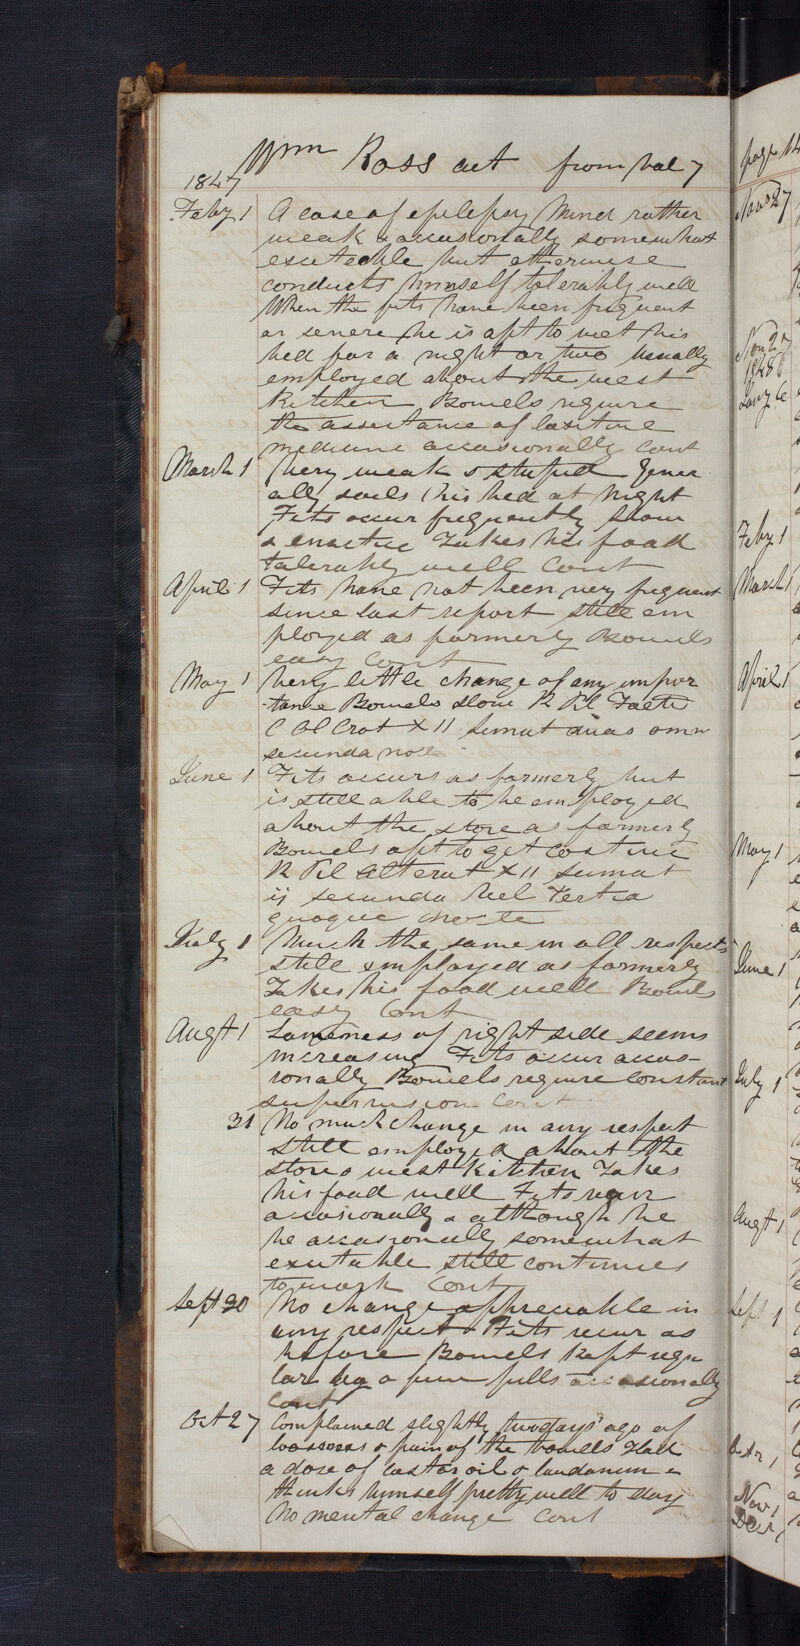 Wm Ross aet from Vol 7
1847
Feby 1 A case of epilepsy Mind rather
weak & occasionally somewhat
exciteable but otherwise
conducts himself tolerably well
When the fits have been frequent
or severe he is apt to wet his
bed for a night or two Usually
employed about the west
Kitchen Bowels require
the assistance of laxitive
medicine occasionally Cont
March 1 Very weak & stupid Gener
ally soils his bed at night
Fits occur frequently slow
& enactive Takes his food
tolerably well Cont
April 1 Fits have not been very frequent
since last report Still em
ployed as formerly Bowels
easy Cont
May 1 Very little change of any impor
tance Bowels slow R Pil
C Ol Crot XII Sumat duas omn
secunda nocte
June 1 Fits occurs as formerly but
is still able to be employed
about the store as formerly
Bowels apt to get costive
R Pil Alterat XII Sumat
ij secunda vel tertia
quaque nocte
July 1 Much the same in all respects
still employed as formerly
Takes his food well Bowels
easy Cont
Augt 1 Lameness of right side seems
increasing Fits occur occas-
ionally Bowels require constant
supervision Cont
31 No much change in any respect
Still employed about the
store & west Kitchen Takes
his food well Fits recur
occasionally & although he
be occasionally somewhat
exitable still continues
to work Cont
Sept 30 No change appreciable in
any respect Fits recur as
before Bowels Kept regu
lar by a few pills occasionally
Cont
Oct 27 Complained slightly two days ago of
looseness & pain of the bowels Had
a dose of castor oil & laudanum &
thinks himself pretty well to day
No mental change Cont
page 14
Nov 27
Nov 27
1848
Jany
Feby 1
March 1
April 1
May 1
June 1
July 1
Augt 1
Sept 1
Oct 1
Nov 1
Dec 1